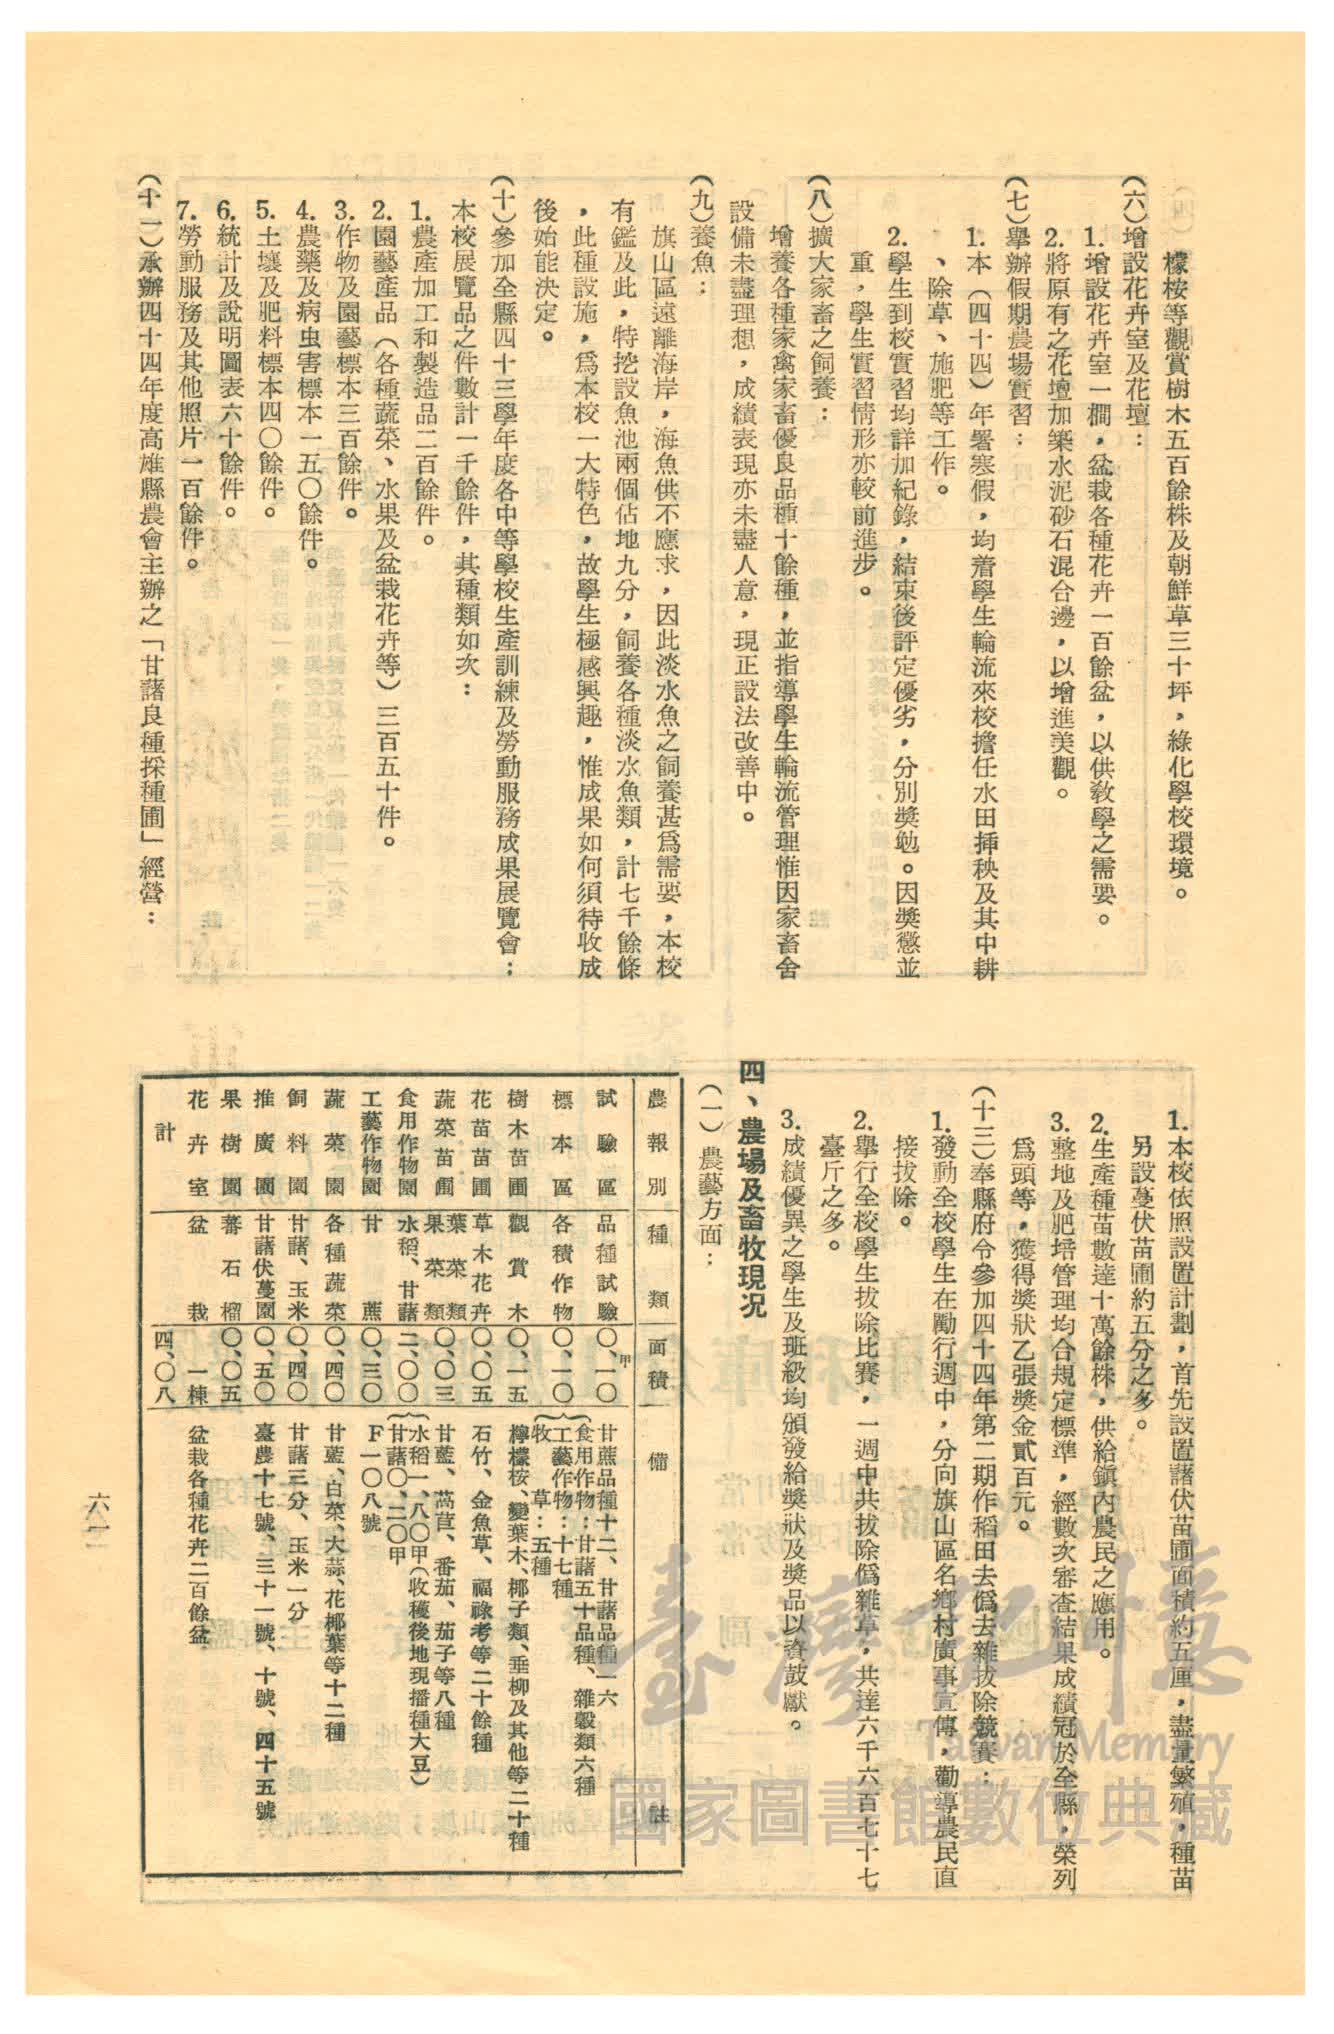 檬桉等觀賞樹木五百餘株及朝鮮草三十坪，綠化學校環境。
(六)增設花卉室及花壇：
1.增設花卉室一櫚，盆栽各種花卉一百餘盆，以供教學之需要。
2.將原有之花壇加築水泥砂石混合邊，以增進美觀。
(七)舉辦假期農場實習：
1.本（四十四）年署寒假，均着學生輪流來校擔任水田挿秧及其中耕
、除草、施肥等工作。
2.學生到校實習均詳加紀錄，結束後評定優劣，分別獎勉。因獎懲並
重，學生實習情形亦較前進步。
(八)擴大家畜之飼養：
增養各種家禽家畜優良品種十餘種，並指導學生輪流管理惟因家畜舍
設備未盡理想，成績表現亦未盡人意，現正設法改善中。
(九)養魚：
旗山區遠離海岸，海魚供不應求，因此淡水魚之飼養甚爲需要，本校
有鑑及此，特挖設魚池兩個佔地九分，飼養各種淡水魚類，計七千餘條
，此種設施，爲本校一大特色，故學生極感興趣，惟成果如何須待收成
後始能決定。
(十)參加全縣四十三學年度各中等學校生產訓練及勞動服務成果展覽會：
本校展覽品之件數計一千餘件，其種類如次：
1.農產加工和製造品二百餘件。
2.園藝產品（各種蔬菜、水果及盆栽花卉等）三百五十件。
3.作物及園藝標本三百餘件。
4.農藥及病虫害標本一五〇餘件。
5.土壤及肥料標本四〇餘件。
6.統計及說明圖表六十餘件。
7.勞動服務及其他照片一百餘件。
(十一)承辦四十四年度高雄縣農會主辦之「甘藷良種採種圃」經營：
1.本校依照設置計劃，首先設置藷伏苗圃面積約五厘，盡量繁殖，種苗
另設蔓伏苗圃約五分之多。
2.生產種苗數達十萬餘株，供給鎮內農民之應用。
3.整地及肥培管理均合規定標準，經數次審查結果成績冠於全縣，榮列
爲頭等，獲得獎狀乙張獎金貳百元。
(十三)奉縣府令參加四十四年第二期作稻田去僞去雜拔除競賽：
1.發動全校學生在勵行週中，分向旗山區名鄉村廣事宣傳，勸導農民直
接拔除。
2.舉行全校學生拔除比賽，一週中共拔除僞雜草，共達六千六百七十七
臺斤之多。
3.成績優異之學生及班級均頒發給獎狀及獎品以資鼓勵。
四、農場及畜牧現况
(一)農藝方面：
農報別 種類 面積 備註
試驗區 品種試驗 〇、一〇甲 甘蔗品種十二、甘藷品種一六
標本區 各積作物 〇、一〇 食用作物：甘藷五十品種、雜穀類六種
工藝作物：十七種
牧草：五種
樹木苗圃 觀賞木 〇、一五 檸檬桉、變葉木、椰子類、垂柳及其他等二十種
花苗苗圃 草木花卉 〇、〇五 石竹、金魚草、福祿考等二十餘種
蔬菜苗圃 葉菜類 果菜類 〇、〇三 甘藍、萵苣、番茄、茄子等八種
食用作物園 水稻、甘藷 二、〇〇 水稻一、八〇甲（收穫後地現播種大豆）
甘藷〇、二〇甲
工藝作物園 甘蔗 〇、三〇 F一〇八號
蔬菜園 各種蔬菜 〇、四〇 甘藍、白菜、大蒜、花椰葉等十二種
飼料園 甘藷、玉米 〇、四〇 甘藷三分、玉米一分
推廣園 甘藷伏蔓園 〇、五〇 臺農十七號、三十一號、十號、四十五號
果樹園 蕃石榴 〇、〇五
花卉室 盆栽 一棟 盆栽各種花卉二百餘盆
計 四、〇八
六二
臺灣記憶
Taiwan Memory
國家圖書館數位典藏